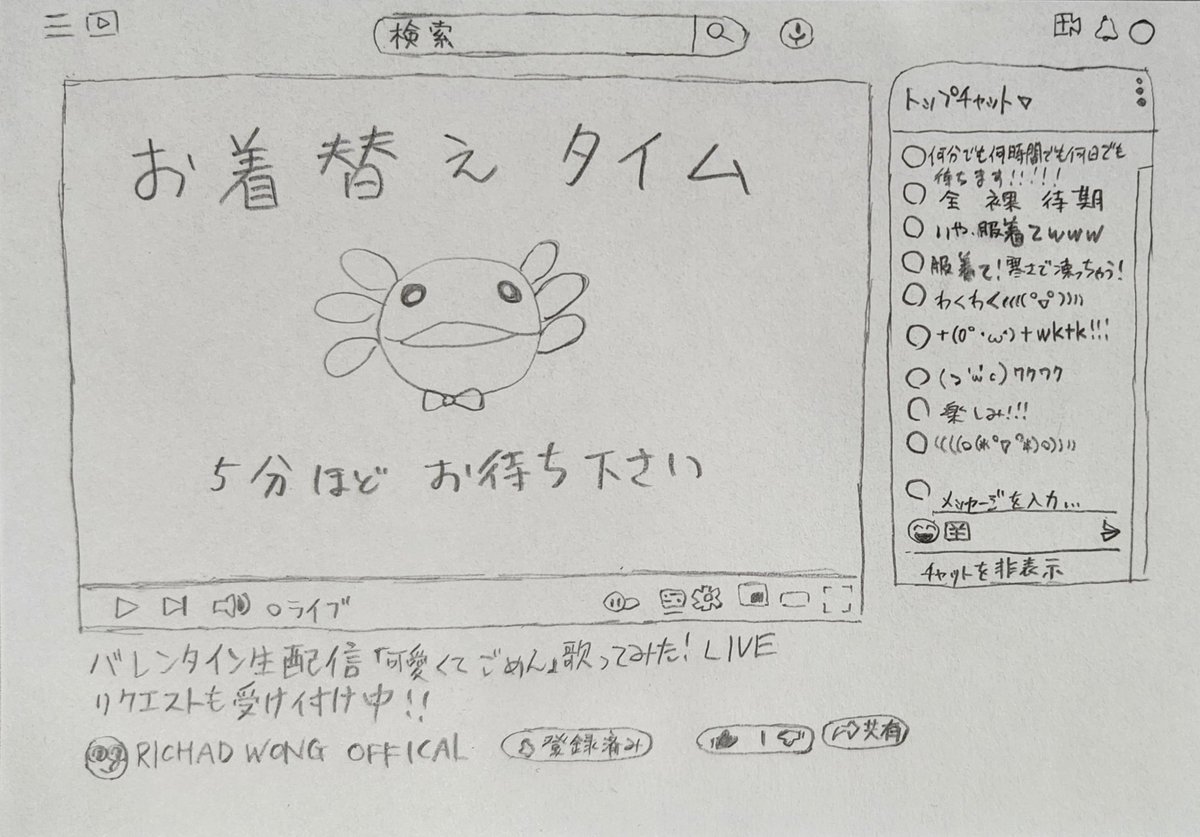 検索
お着替えタイム
5分ほど お待ち下さい
ライブ
バレンタイン生配信「可愛くてごめん」歌ってみた! LIVE
リクエストも受け付け中!!
RICHAD WONG OFFICAL
登録済み
共有
トップチャット▽
何分でも何時間でも何日でも
待ちます!!!!!
全 裸 待 期
いや、服着てwww
服着て!寒さで凍っちゃう!
わくわく((((°▽°))))
+(0°・ω・)+wktk!!!
(っ'ω'c)ワクワク
楽しみ!!!
((((o(*°▽°*)o))))
メッセージを入力...
¥
チャットを非表示